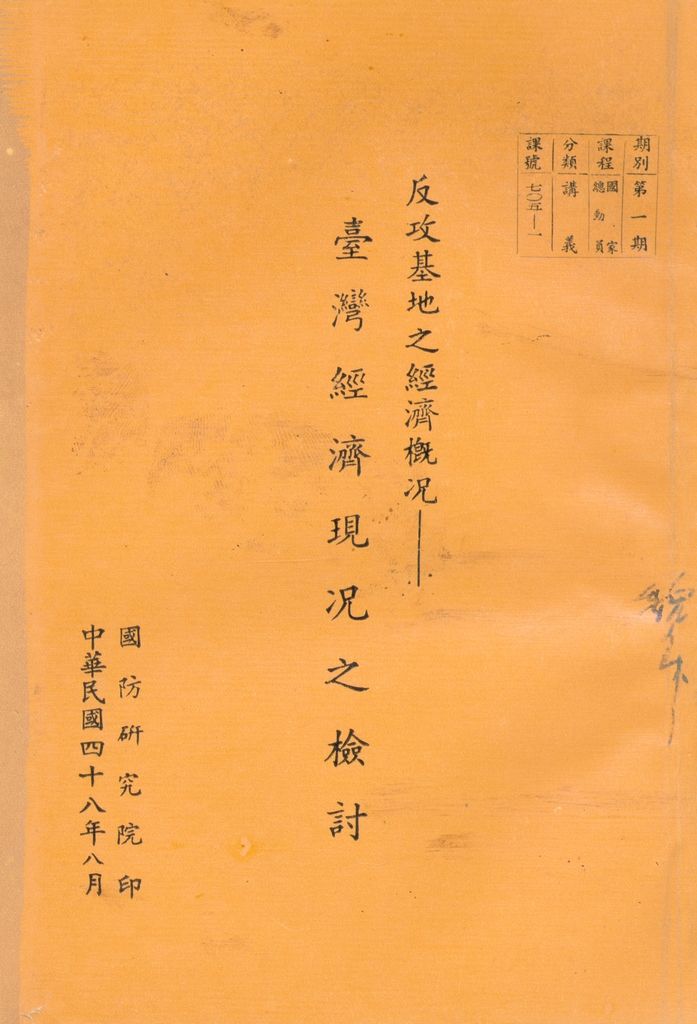 期別 第一期
課程 國家總動員
分類 講義
課號 七〇五—一
反攻基地之經濟概况——
臺灣經濟現况之檢討
國防研究院印
中華民國四十八年八月